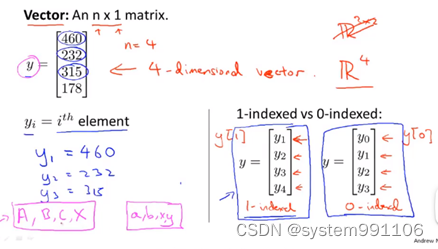 Vector: An n x 1 matrix.
n = 4
ℝ^{3×2}
y = [460
232
315
178]
← 4-dimensional vector.
ℝ^4
y_i = i^{th} element
y_1 = 460
y_2 = 232
y_3 = 315
A, B, C, X
a, b, x, y
1-indexed vs 0-indexed:
y[1]
y = [y_1
y_2
y_3
y_4]
1-indexed
y[0]
y = [y_0
y_1
y_2
y_3]
0-indexed
CSDN @system991106
Andrew